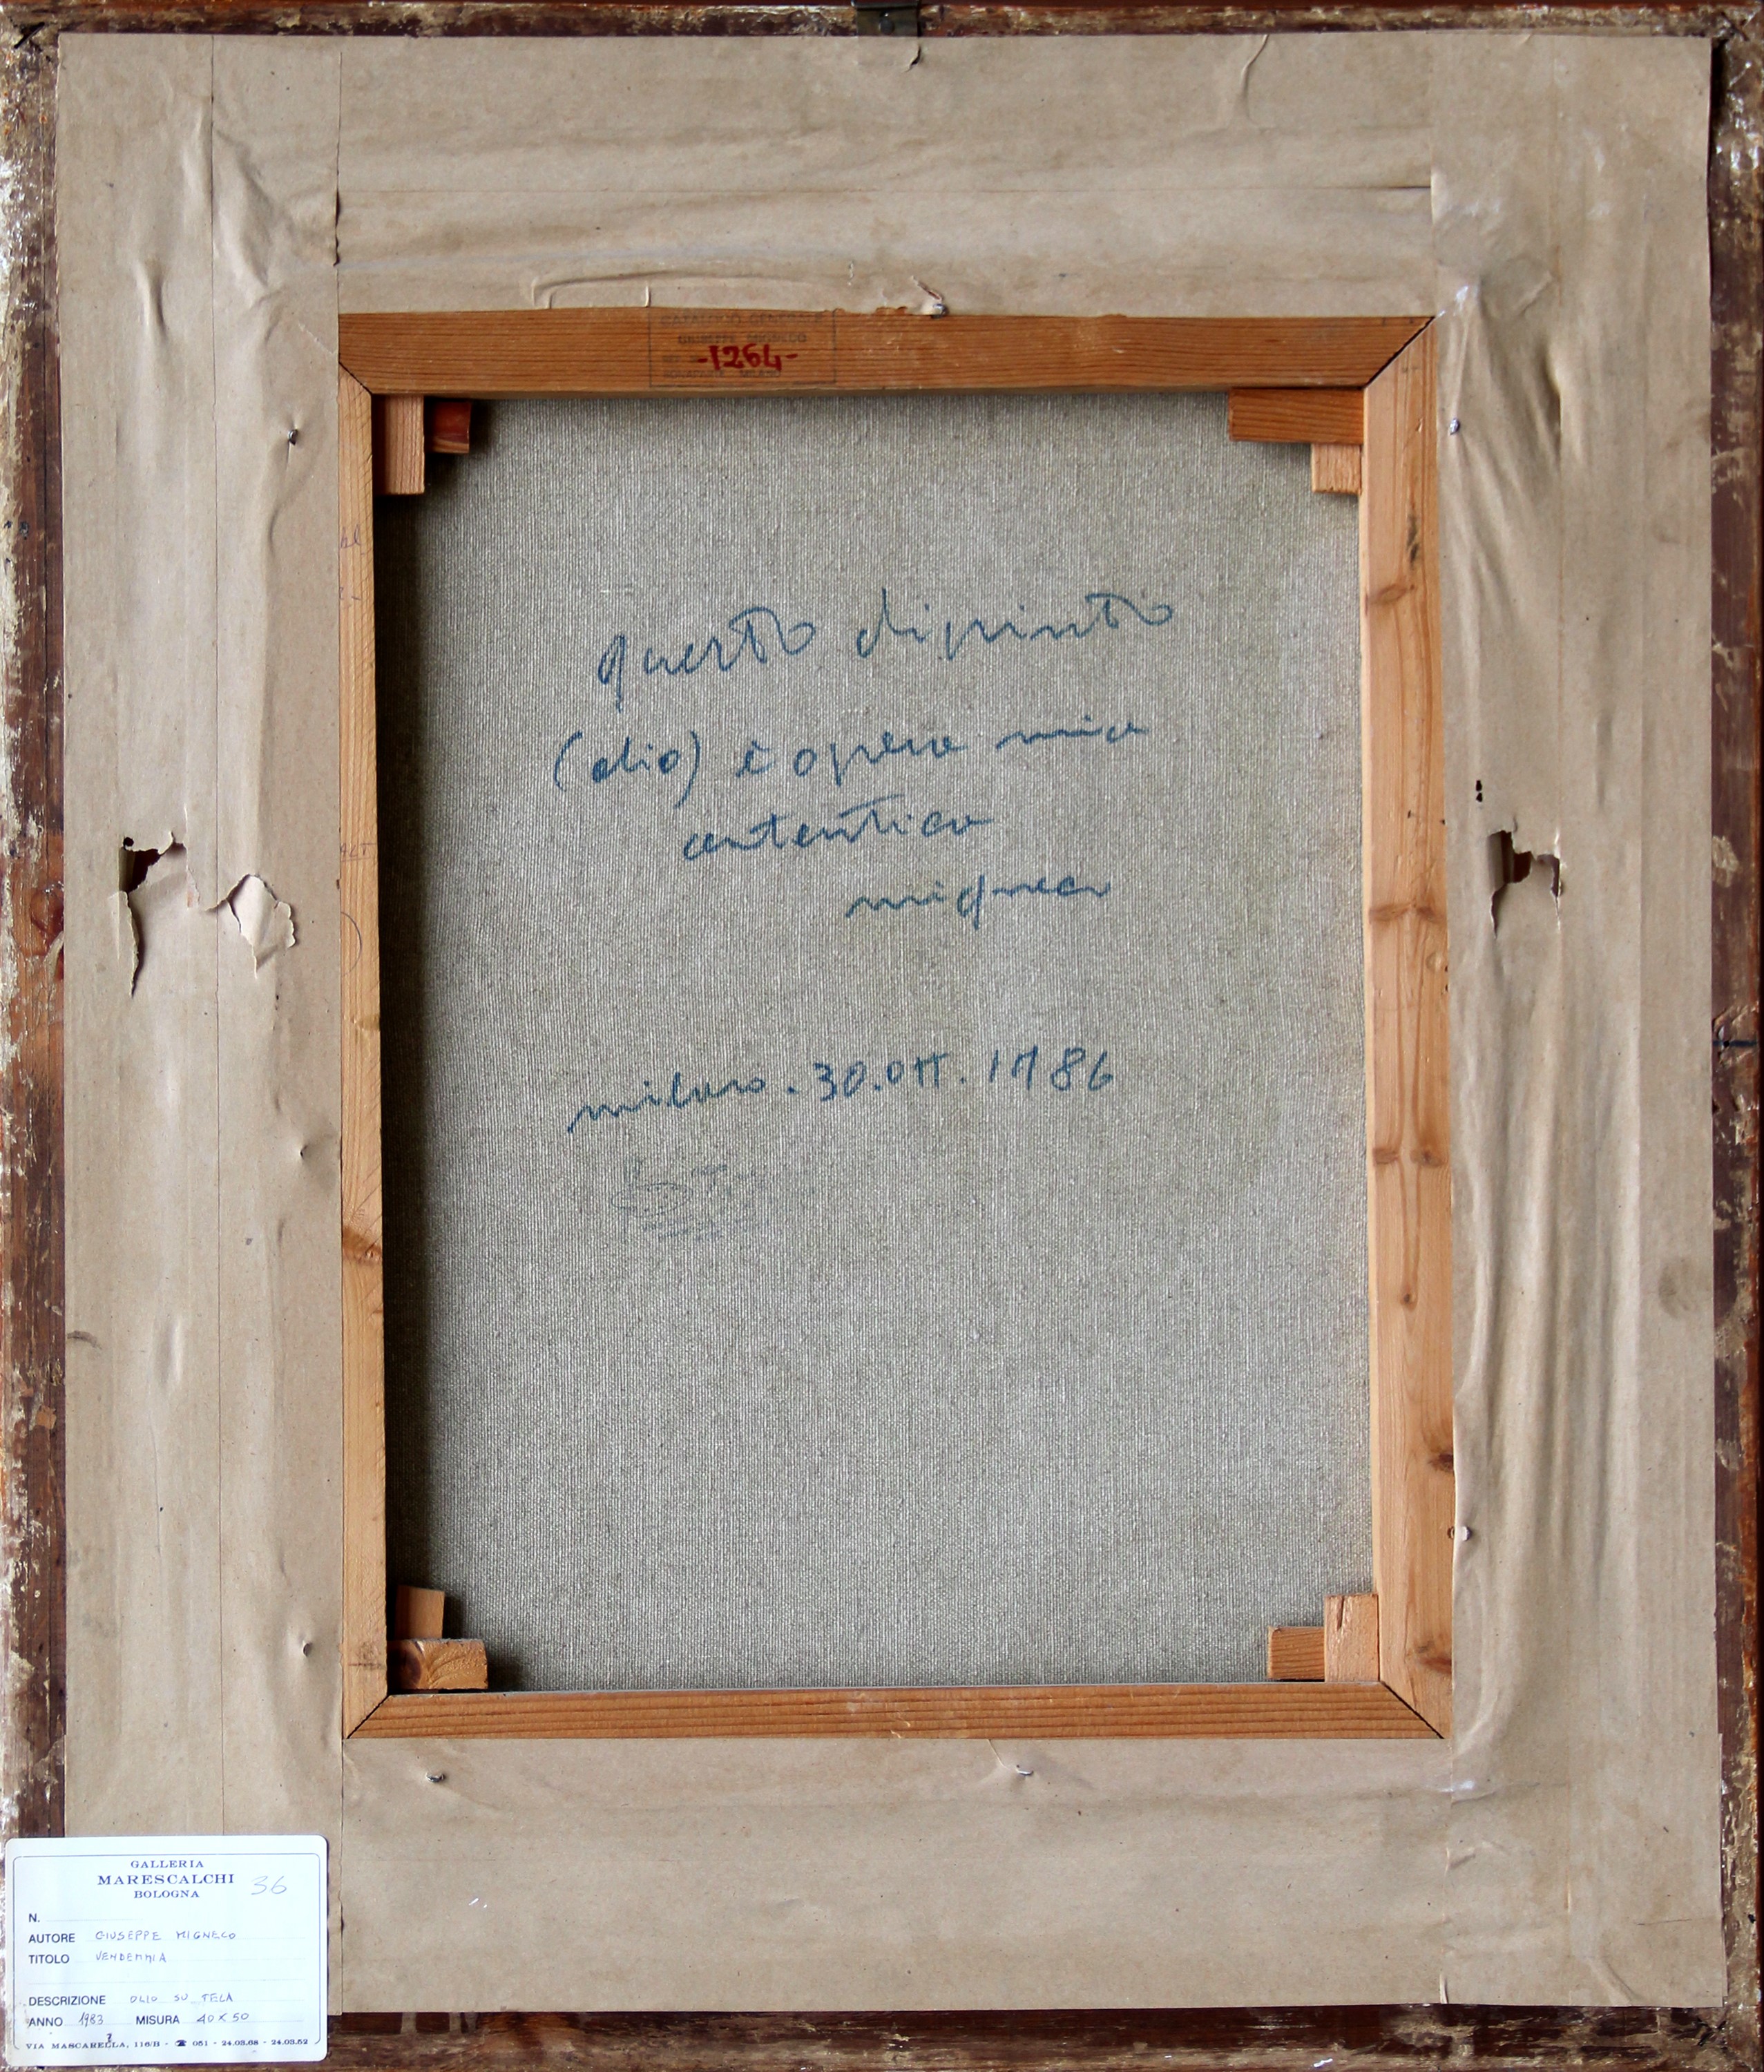 CATALOGO GENERALE
GIUSEPPE MIGNECO
-1264-
MILANO
questo dipinto
(olio) è opera mia
autentica
migneco
milano . 30 . OTT . 1986
GALLERIA
MARESCALCHI 36
BOLOGNA
N.
AUTORE GIUSEPPE MIGNECO
TITOLO VENDEMMIA
DESCRIZIONE OLIO SU TELA
ANNO 1983 ? MISURA 40 X 50
VIA MASCARELLA, 116/B - ☎ 051 - 24.03.68 - 24.03.52